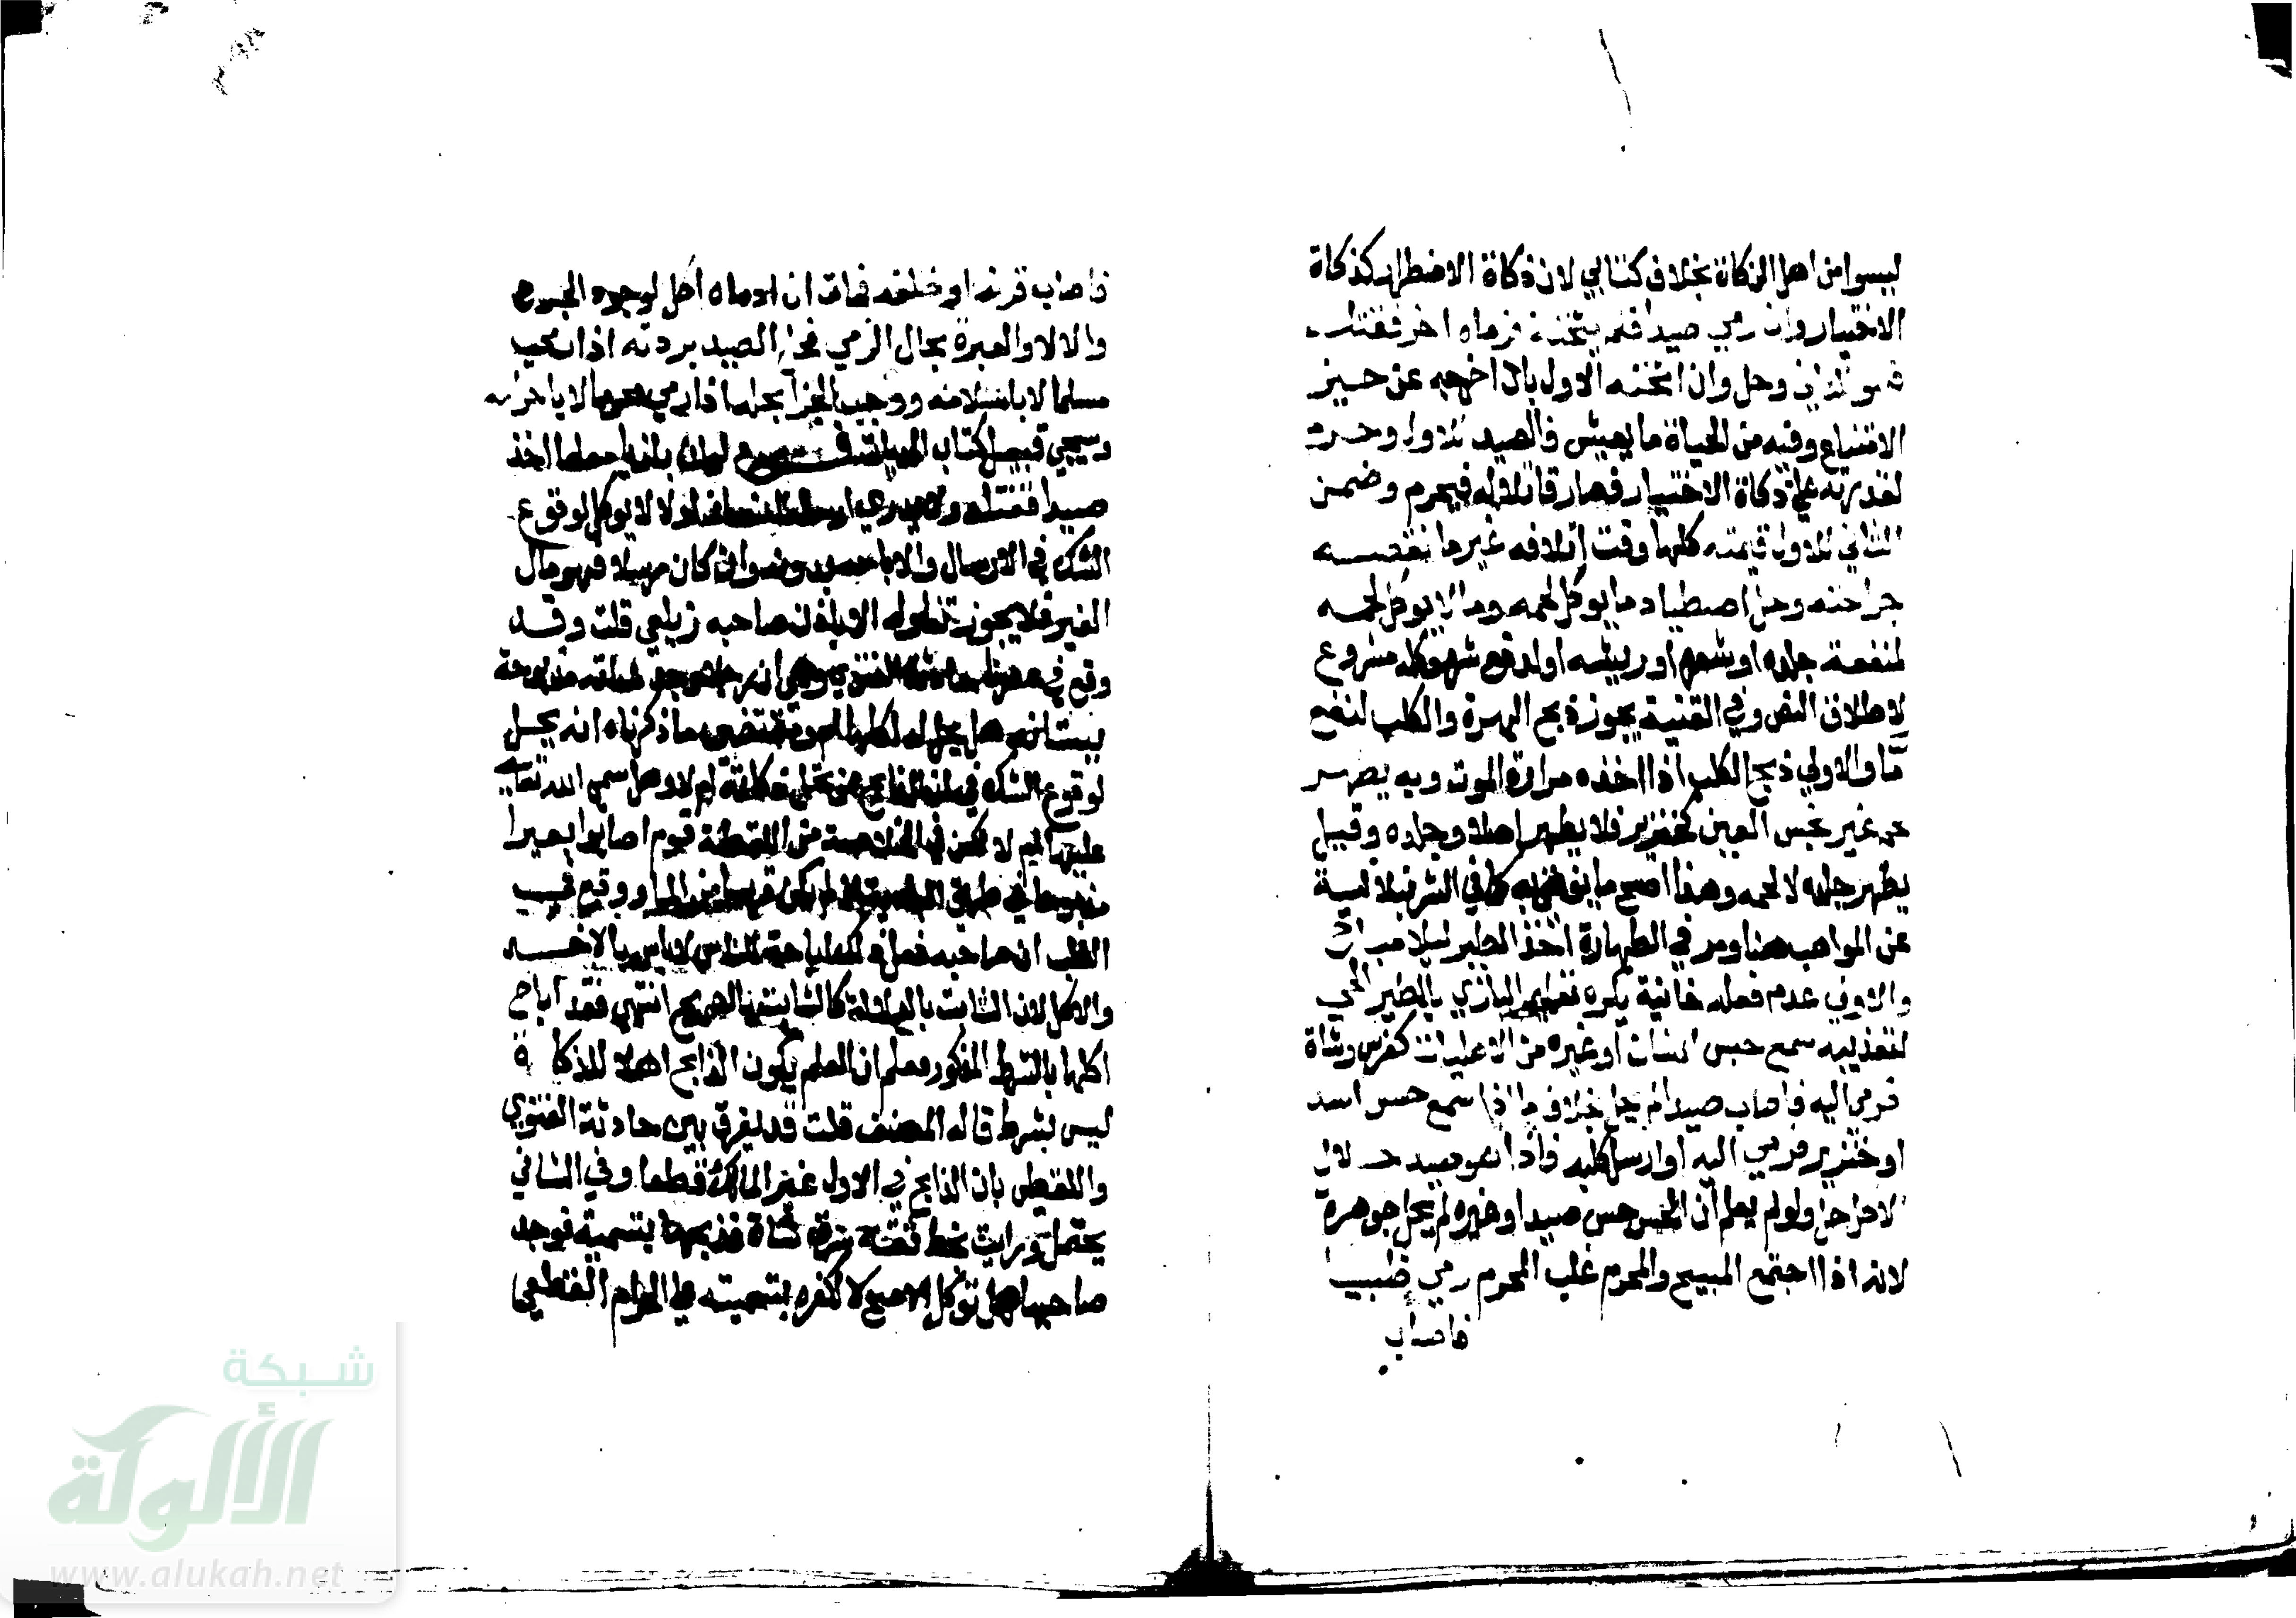 ليسوا من اهل الزكاة بخلاف كتابي لان ذكاة الاضطرار كذكاة
الاختيار وان رمي صيدا فلم يثخنه فرماه اخر فقتله
فهو للثاني وحل وان اثخنه الاول بان اخرجه عن حيز
الامتناع وفيه من الحياة ما يعيش فالصيد للاول وحرم
لقدرته علي ذكاة الاختيار فصار قاتلا له فيحرم وضمن
الثاني للاول قيمته كلها وقت اتلافه غير ما نقصته
جراحته وحل اصطياد ما يوكل لحمه وما لا يوكل لحمه
لمنفعة جلده او شعره او ريشه او لدفع شره وكله مشروع
لاطلاق النص وفي القنية يجوز ذبح الهرة والكلب لنفع
ما والاولي ذبح الكلب اذا اخذه مرارة الموت وبه يطهر
غير نجس العين كخنزير فلا يطهر اصلا وجلده وقيل
يطهر جلده لا لحمه وهذا اصح ما يفتي به كما في الشرنبلالية
عن المواهب هنا ومر في الطهارة اخذ الطير ليلا مباح
والاولي عدم فعله خانية يكره تعليم البازي بالطير الحي
لتعذيبه سمع حس انسان او غيره من الاهليات كفرس وشاة
فرمي اليه فاصاب صيدا لم يحل بخلاف ما اذا سمع حس اسد
او خنزير فرمي اليه او ارسل كلبه فاذا هو صيد حلال
الاحل حل ولو لم يعلم ان الحس حس صيد او غيره لم يحل جوهرة
لانه اذا اجتمع المبيح والمحرم غلب المحرم رمي ظبيا
فاصاب
فاصاب قرنه او ظلفه فمات ان ادماه اكل لوجود الجرح
والا لا والعبرة بحال الرمي فحل الصيد بردته اذا رمي
مسلما لا باسلامه ووجب الجزا بحله اذا رمي محرما لا باحرامه
وسيجي قبيل كتاب الديات فرع لو ان بازيا معلما اخذ
صيدا فقتله ولا يدري ارسله انسان او لا لا يوكل لوقوع
الشك في الارسال ولا اباحة بدونه وان كان مرسلا فهو مال
الغير فلا يجوز تناوله الا باذن صاحبه زيلعي قلت وقد
وقع في عصرنا حادثة الفتوي وهي ان رجلا وجد شاته مذبوحة
ببستانه هل يحل له اكلها ام لا ومقتضي ما ذكرناه انه يحل
لوقوع الشك في ان الذابح ممن تحل ذكاته ام لا وهل سمي الله تعالي
عليها ام لا لكن في الخلاصة من اللقطة قوم اصابوا بعيرا
مذبوحا في طريق البادية ان لم يكن قريبا من الماء ووقع في
القلب ان صاحبه فعل ذلك اباحة للناس لا باس بالاخذ
والاكل لان الثابت بالدلالة كالثابت بالصريح انتهي فقد اباح
اكلها بالشرط المذكور فعلم ان العلم بكون الذابح اهلا للذكاة
ليس بشرط قاله المصنف قلت قد يفرق بين حادثة الفتوي
واللقطة بان الذابح في الاول غير المالك قطعا وفي الثاني
يحتمل ورايت بخط ثقة سرق شاة فذبحها بتسمية فوجد
صاحبها هل توكل الاصح لا لكفره بتسميته علي الحرام القطعي
شبكة
الألوكة
www.alukah.net